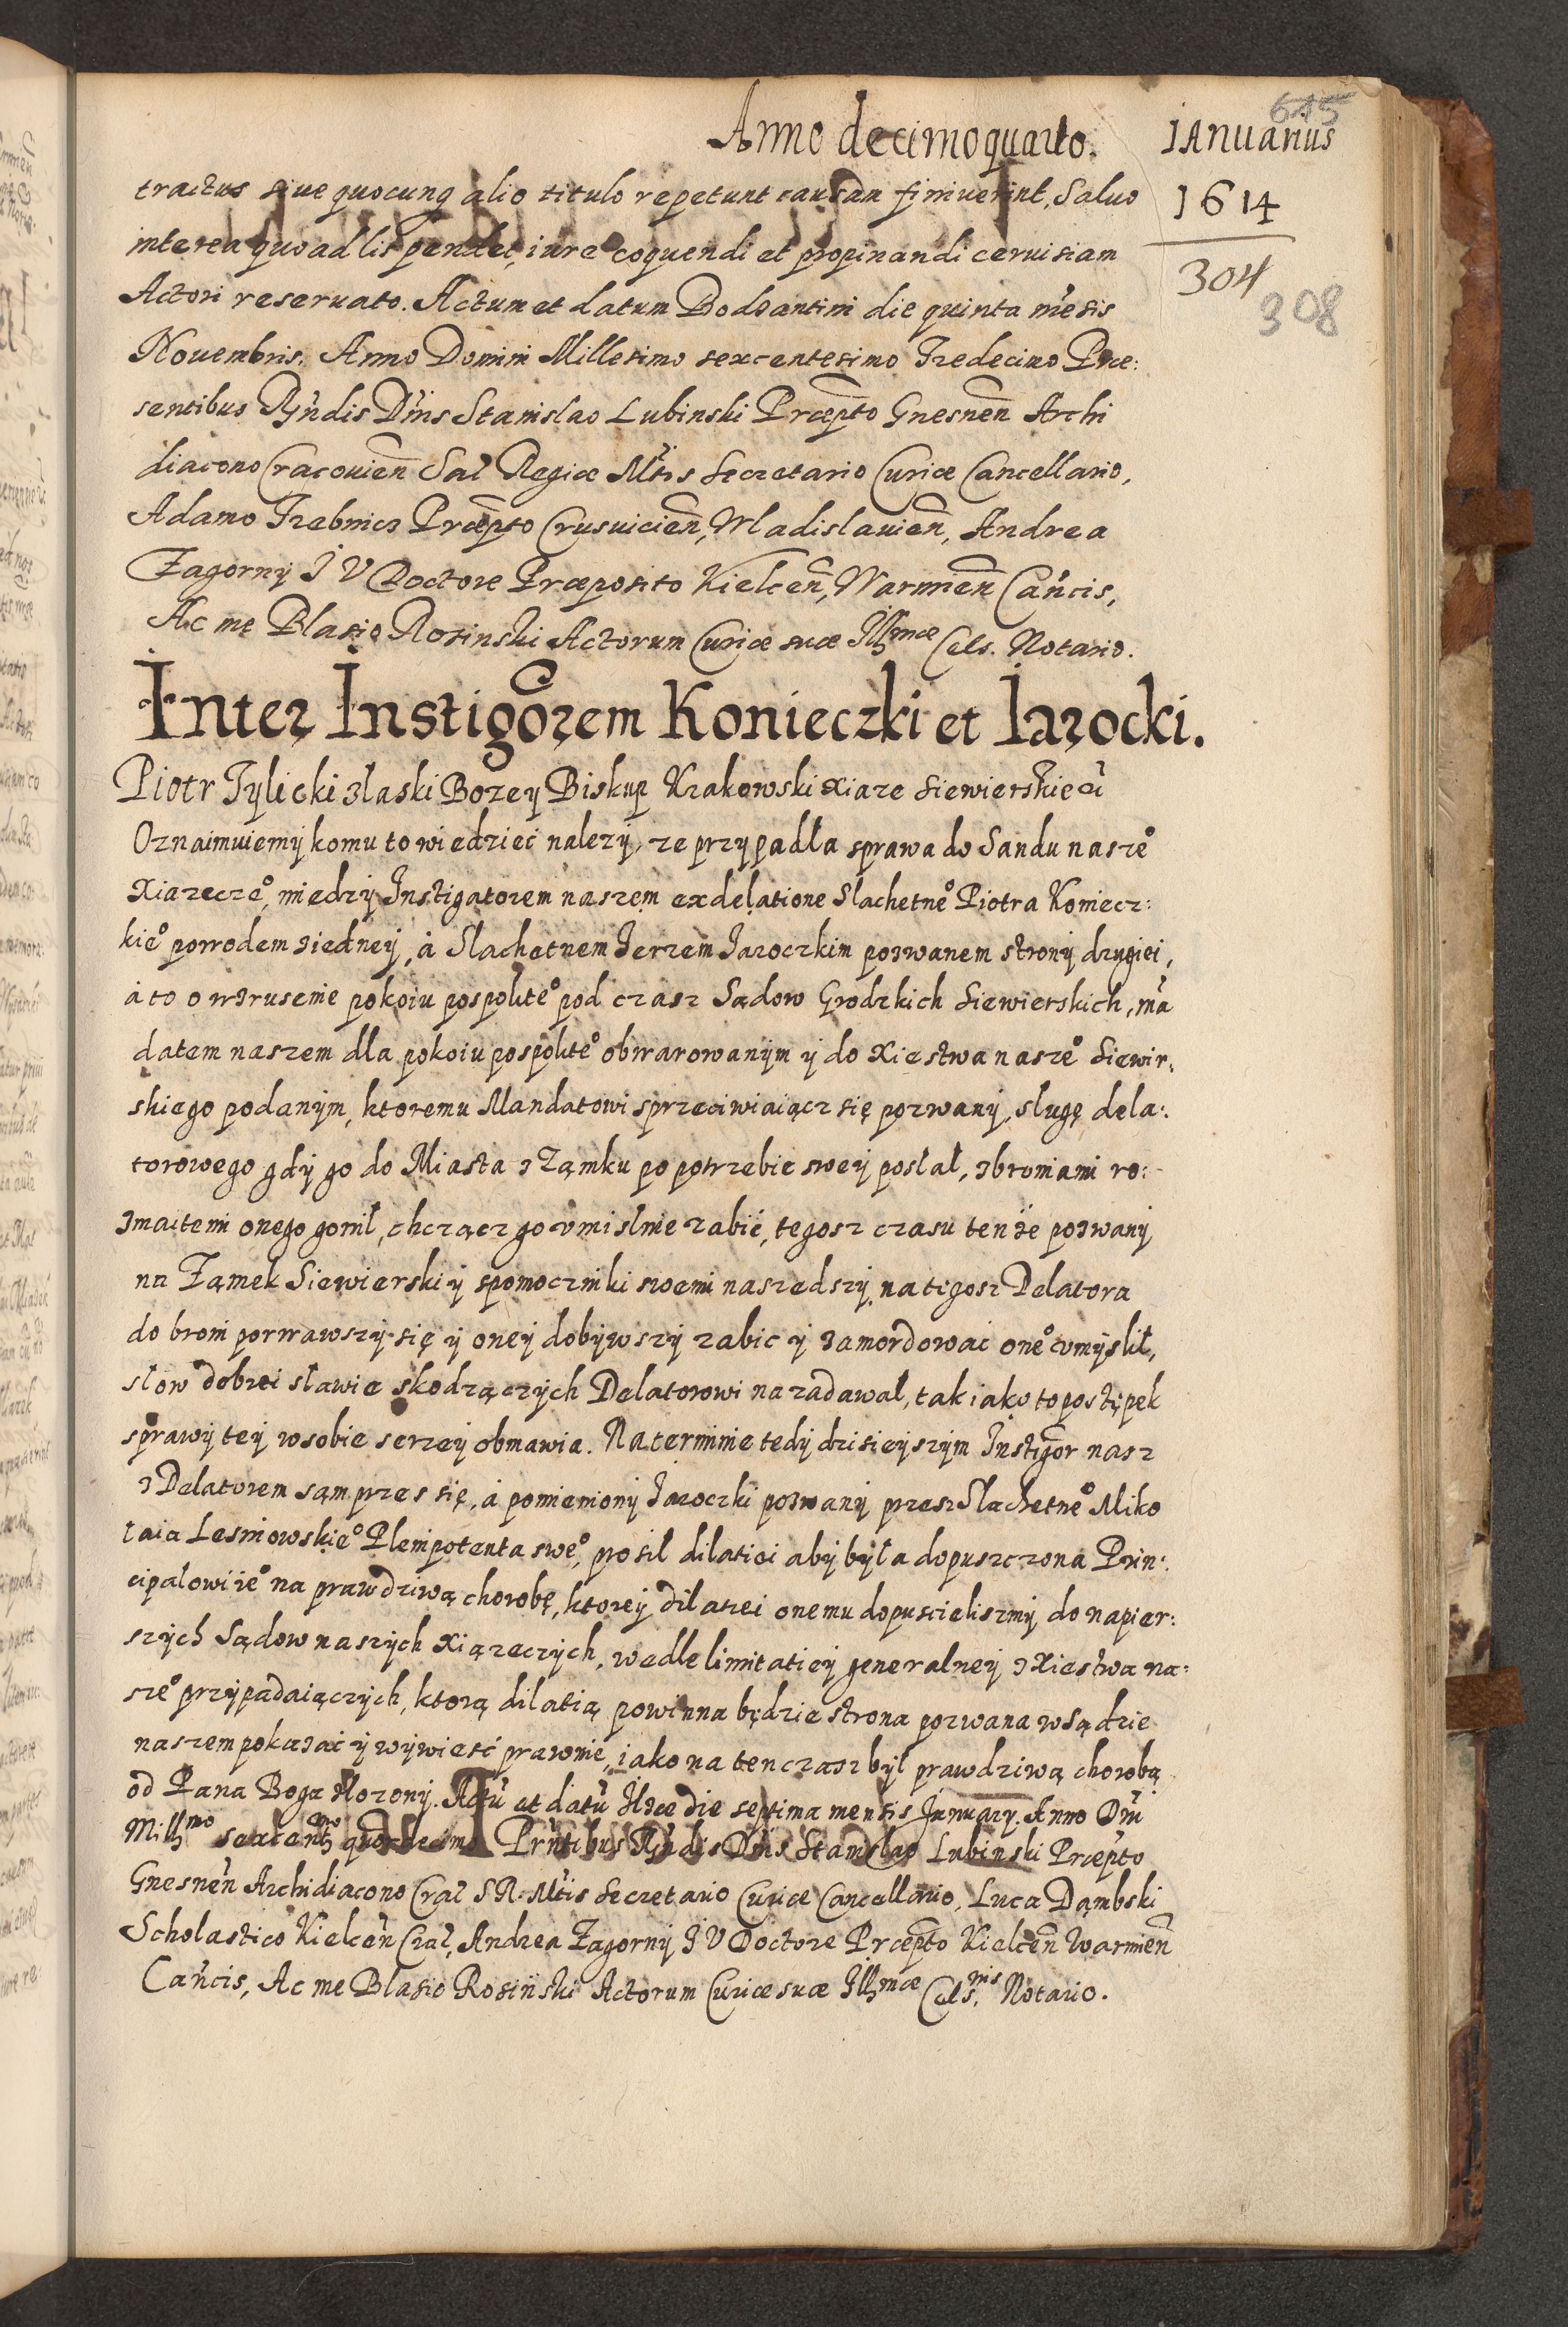 615
Anno decimoquarto. IANuarius
1614
304
308
tractus siue quocunq alio titulo repetunt causam finiuerint, Saluo
interea quoad lis pendet, iure coquendi et propinandi ceruisiam
Actori reseruato. Actum et datum Bodzantini die quinta mēsis
Nouembris. Anno Domini Millesimo sexcentesimo Tredecimo Præ:
sentibus Rṅdis Dn̄is Stanislao Lubinski Præpto Gnesnen̄ Archi
diacono Cracouien̄ Sac̄ Regiæ Mtīs Secretario Curiæ Cancellario,
Adamo Trebnicz Præpto Crusuicien̄, Wladislauien̄, Andrea
Zagorny I V Doctore Præposito Kielcen̄, Warmien̄ Can̄cis,
Ac me Blasio Rosinski Actorum Curiæ suæ Illmæ Cels. Notario.
Inter Instigōrem Konieczki et Iarocki.
Piotr Tylicki zlaski Bozey Biskup Krakowski xiaze Siewierskie
Oznaimuiemy komu to wiedzieć nalezy, ze przypadła sprawa do Sandu nasze°
Xiazecze°, miedzy Instigatorem naszem ex delatione Slachetne° Piotra Koniecz:
kie° powodem ziedney, à Slachetnem Jerzem Jaroczkim pozwanem strony drugiei,
à to o wzrusenie pokoiu pospolite° pod czasz Sądow Grodzkich Siewierskich, mā
datem naszem dla pokoiu pospolite° obwarowanym y do Xiestwa nasze° Siewir:
skiego podanym, ktoremu Mandatowi sprzeciwiaiącz się pozwany, slugę dela:
torowego gdy go do Miasta z Ząmku po potrzebie swey posłał, zbroniami ro:
zmaitemi onego gonił, chczącz go vmislnie zabić, tegosz czasu tenże pozwany
na Ząmek Siewierski y spomoczniki swemi naszedszy, na tegosz Delatora
do broni porwawszy się y oney dobywszy zabic y zamordowaċ one° vmyslił,
słow dobrei sławie skodzączych Delatorowi nazadawał, tak iako to postępek
sprawy tey wsobie serzey obmawia. Na terminie tedy dzisieyszym Instigōr nasz
z Delatorem sąm przes się, à pomieniony Jaroczki pozwany przesz Slachetne° Miko
łaia Lesniowskie° Plenipotenta swe°, prosił dilatiei aby była dopuszczona Prin:
cipałowi ie° na prawdziwą chorobę, ktorey dilatiei onemu dopuscielismy do napier:
szych Sądow naszych Xiązeczych, wedle limitatiey generalney z Xiestwa na:
sze° przypadaiączych, ktorą dilatią powinna będzie strona pozwana wSądzie
naszem pokazać y wywieść prawnie, iako na ten czasz był prawdziwą chorobą
od Pana Boga złozony. Actū et datū Ilzæ die septima mensis Januarÿ. Anno Dn̄i
Millmo sexcentmo quardecimo Prn̄tibus Rn̄dis Dn̄is Stanislao Lubinski Præpto
Gnesnen̄ Archidiacono Crac̄ S R. Mtīs Secretario Curiæ Cancellario, Luca Dąmbski
Scholastico Kielcen̄ Crac̄, Andrea Zagorny I V Doctore Præpto Kielcen̄ Warmien̄
Can̄cis, Ac me Blasio Rosiński Actorum Curiæ suæ Illmæ Cels.nis Notario.